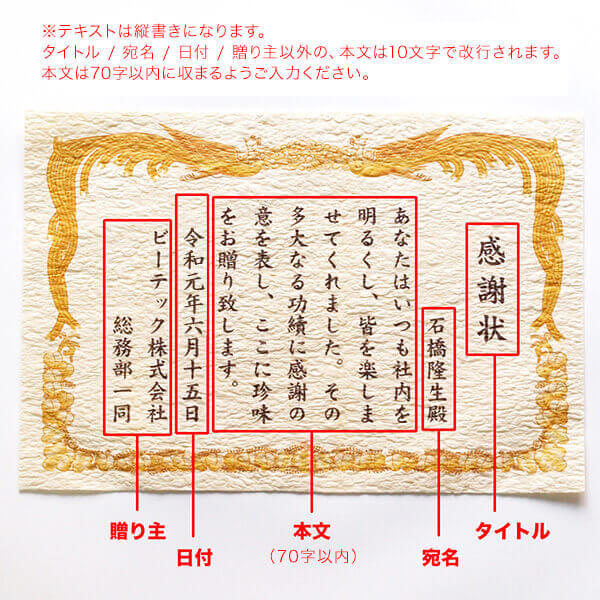 ※テキストは縦書きになります。
タイトル / 宛名 / 日付 / 贈り主以外の、本文は10文字で改行されます。
本文は70字以内に収まるようご入力ください。
感謝状
石橋隆生殿
あなたはいつも社内を
明るくし、皆を楽しま
せてくれました。その
多大なる功績に感謝の
意を表し、ここに珍味
をお贈り致します。
令和元年六月十五日
ビーテック株式会社
総務部一同
贈り主
日付
本文
(70字以内)
宛名
タイトル